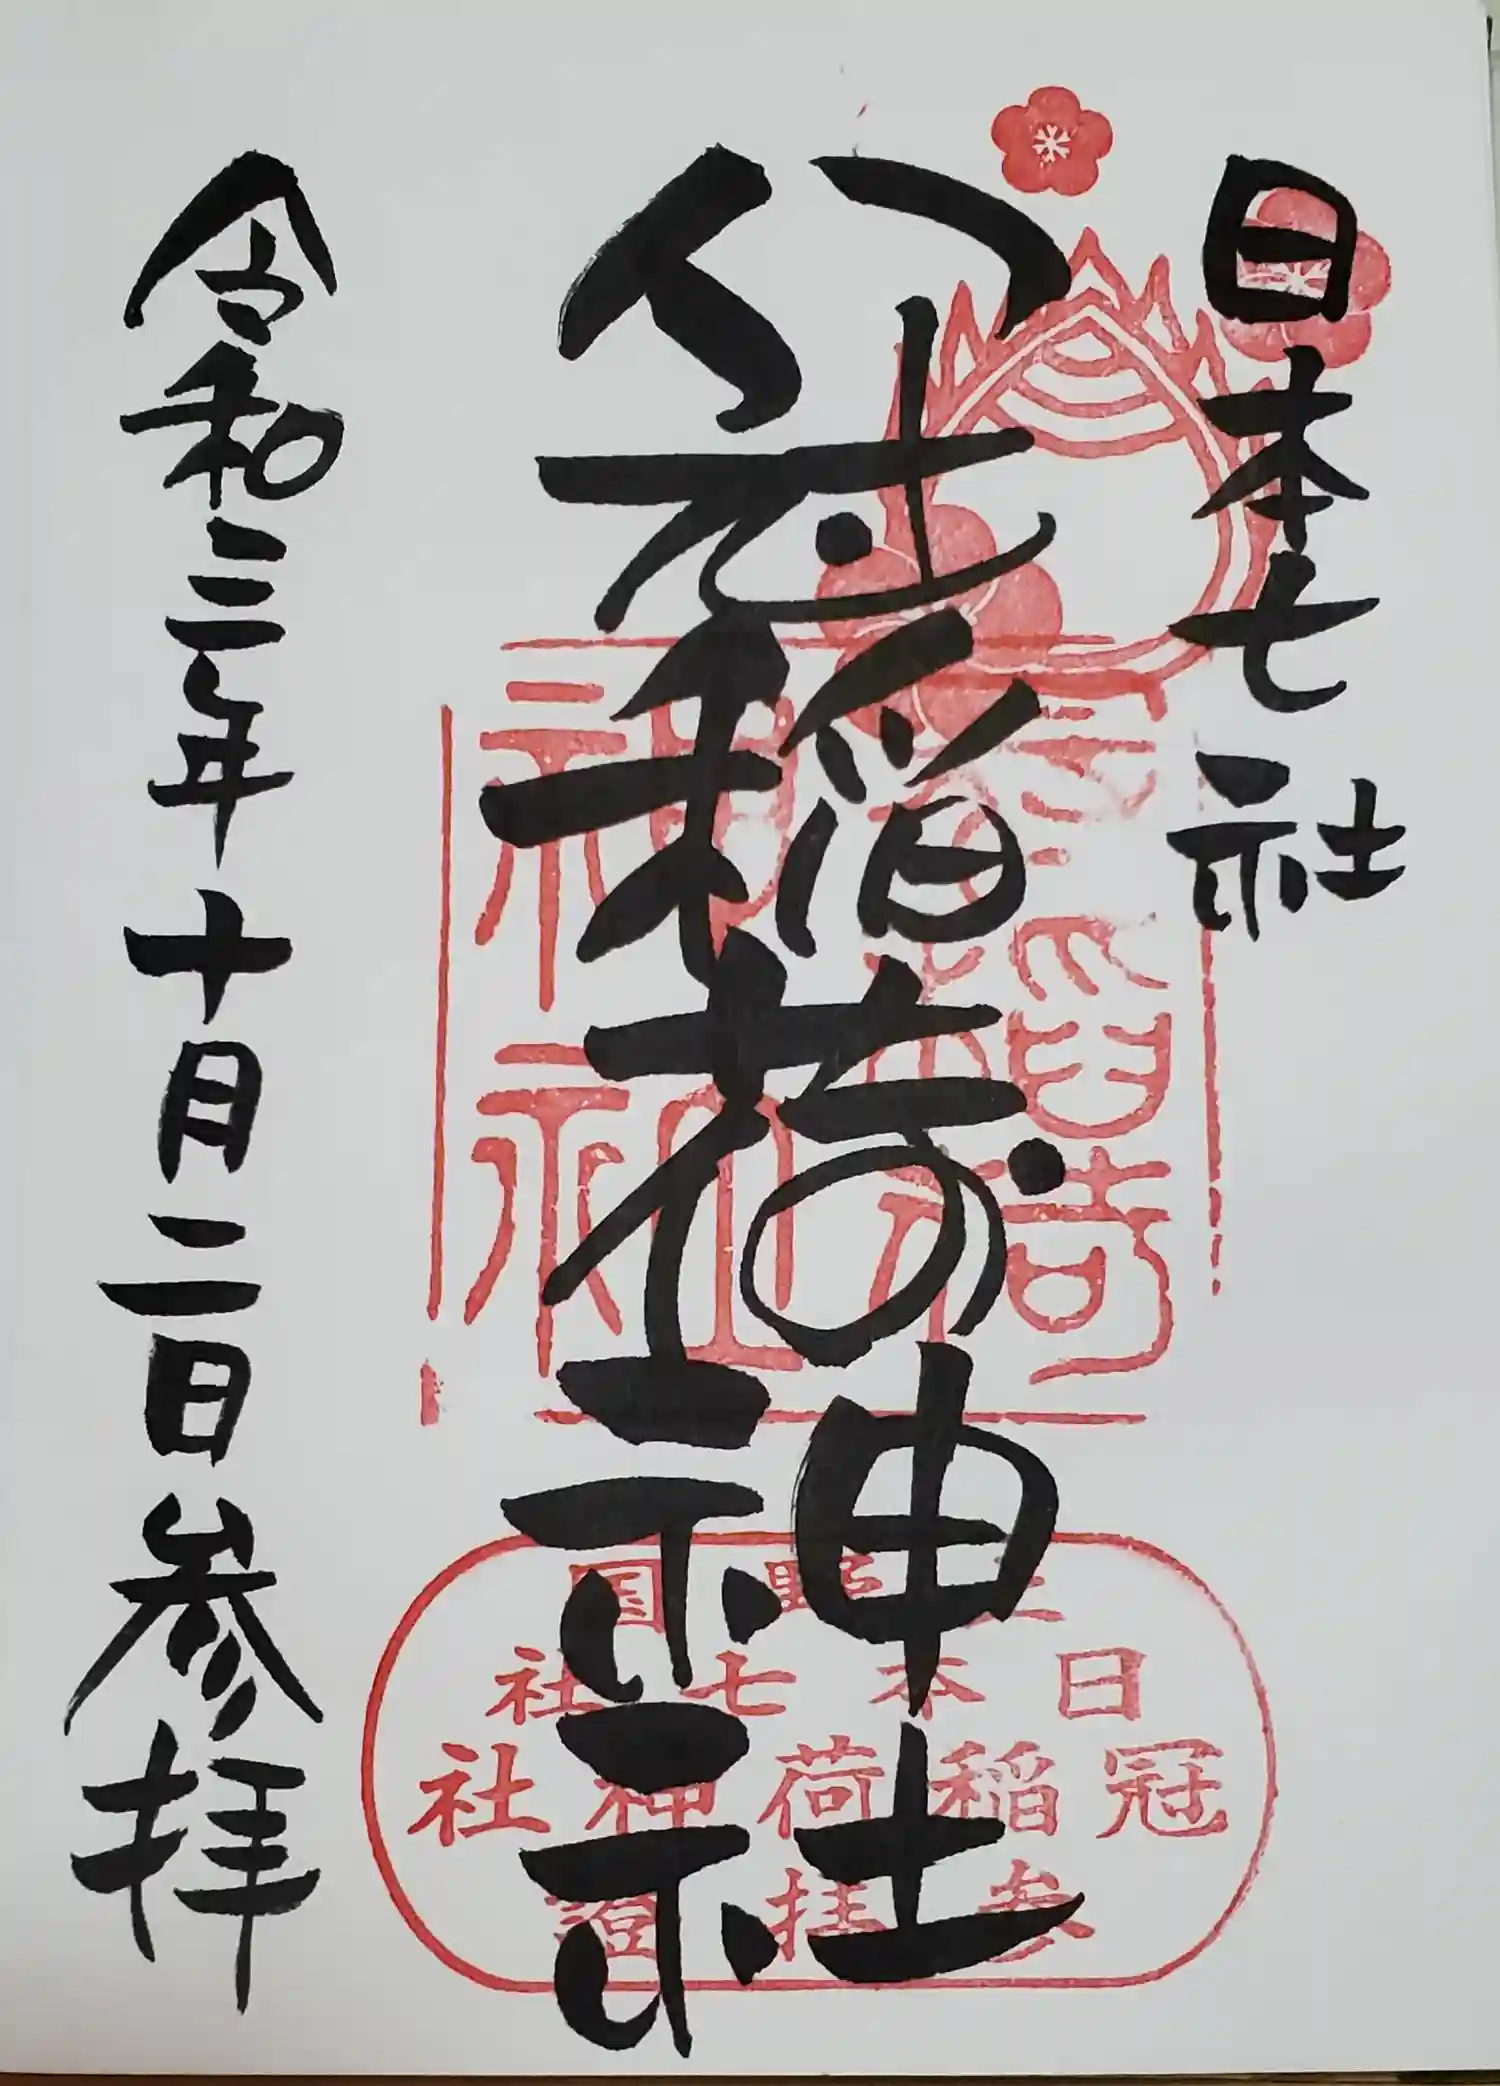 日本七社
冠稲荷神社
令和三年十月二日参拝
冠稲荷
神社
上野国
日本七社
冠稲荷神社
参拝證